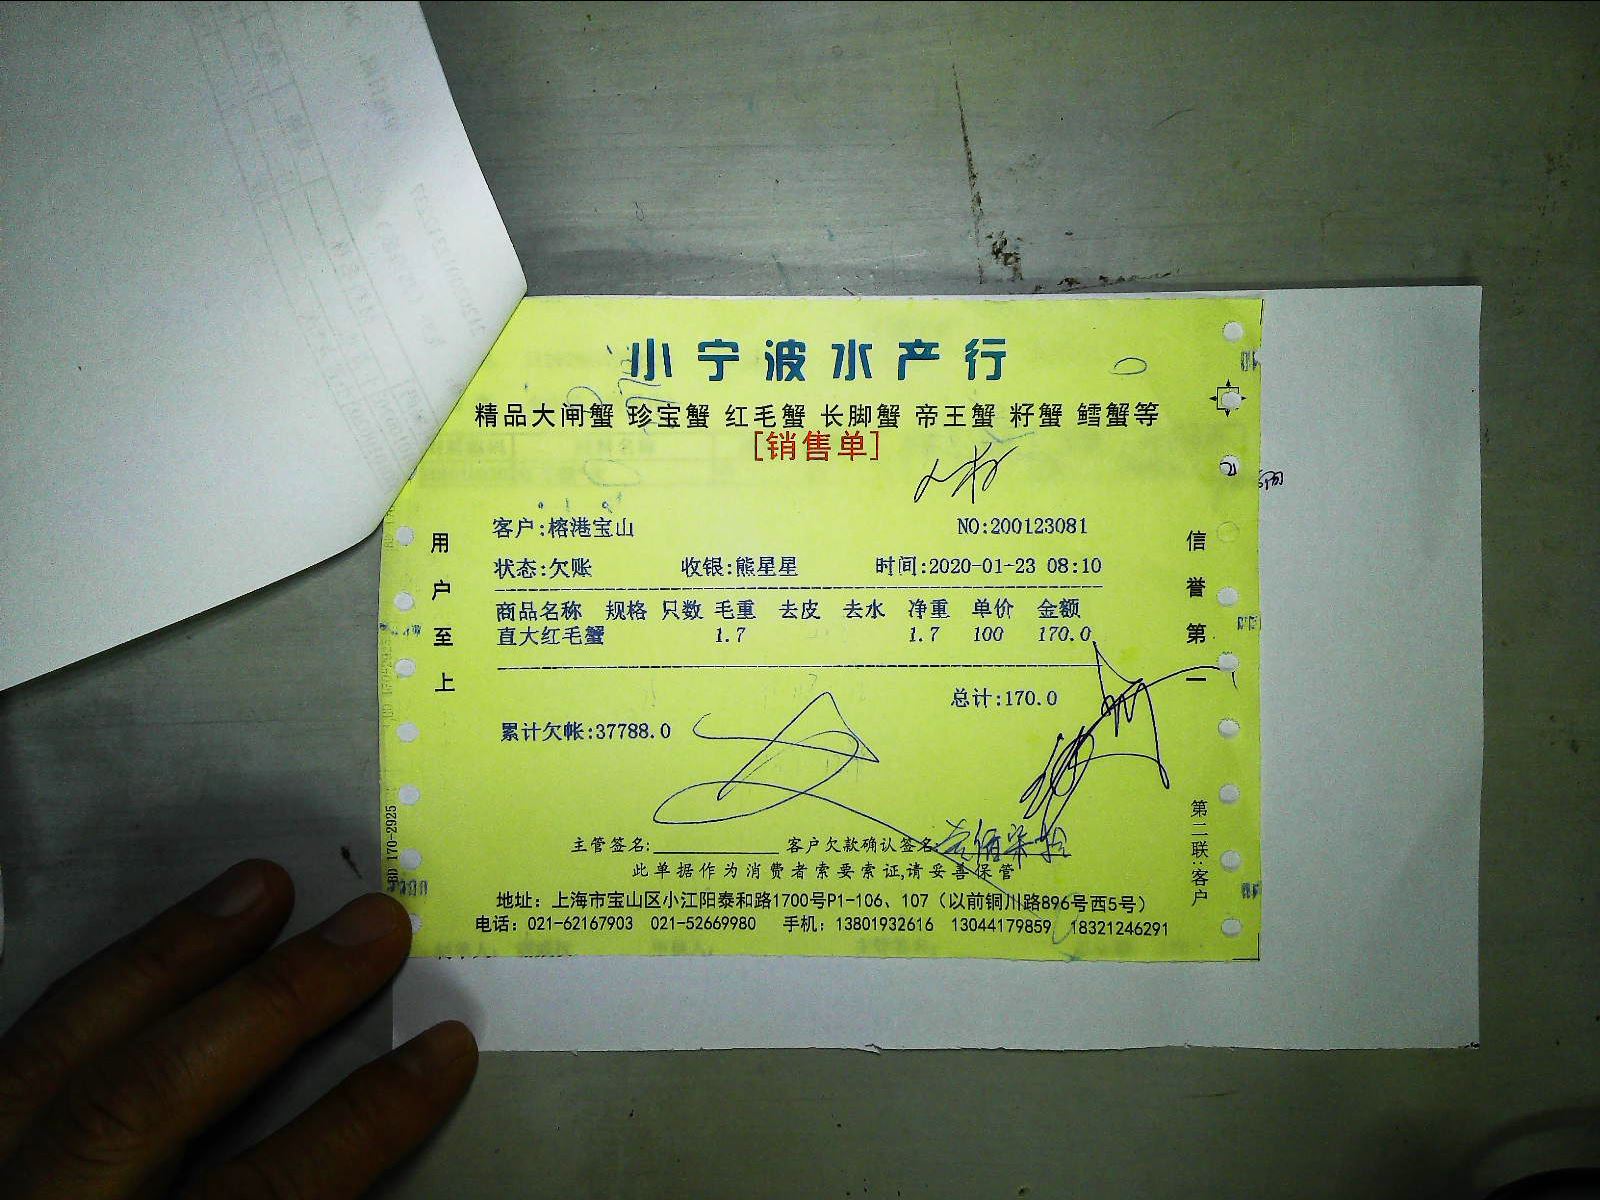 小宁波水产行
精品大闸蟹 珍宝蟹 红毛蟹 长脚蟹 帝王蟹 籽蟹 鳕蟹等
[销售单]
客户:榕港宝山 NO:200123081
状态:欠账 收银:熊星星 时间:2020-01-23 08:10
商品名称 规格 只数 毛重 去皮 去水 净重 单价 金额
直大红毛蟹 1.7 1.7 100 170.0
总计:170.0
累计欠帐:37788.0
主管签名: 客户欠款确认签名:
壹佰柒拾
此单据作为消费者索要索证,请妥善保管
地址：上海市宝山区小江阳泰和路1700号P1-106、107（以前铜川路896号西5号）
电话：021-62167903 021-52669980 手机：13801932616 13044179859 18321246291
用户至上
信誉第一
第二联:客户
BD 170-2925